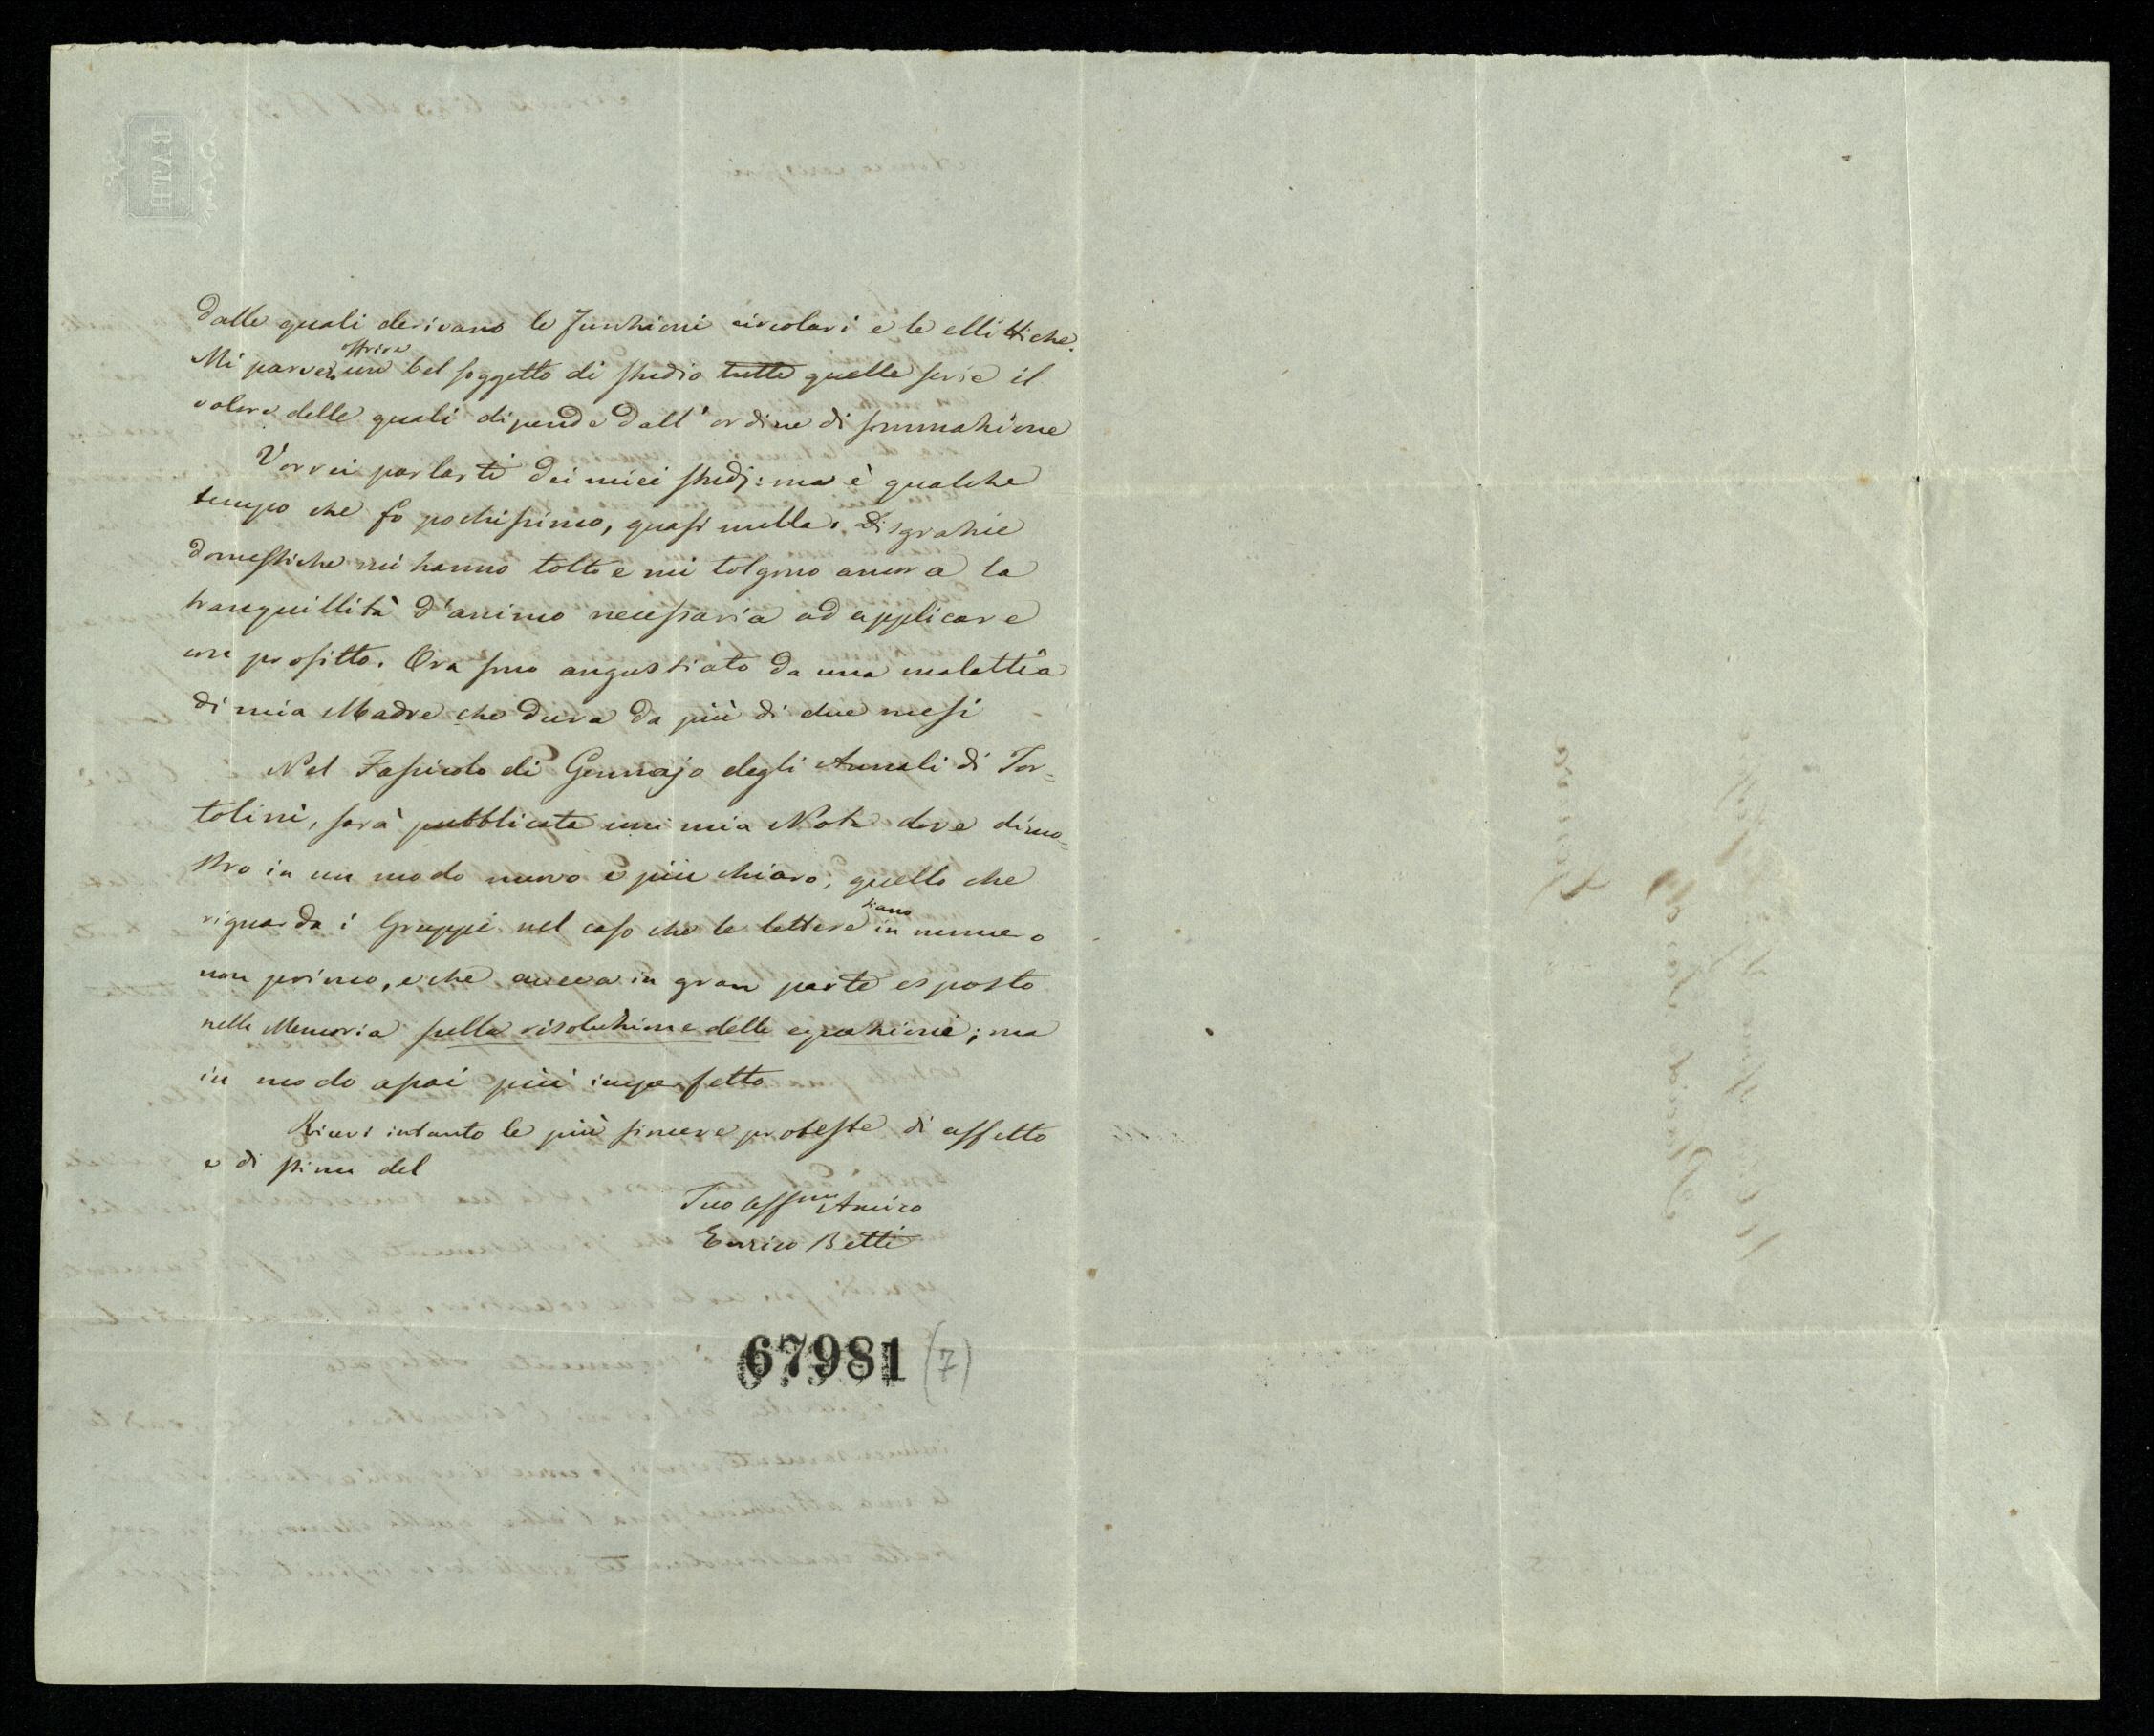 BATH
dalle quali derivano le funzioni circolari e le ellittiche.
Mi parve offrire un bel soggetto di studio tutte quelle serie il
valore delle quali dipende dall'ordine di sommazione
Vorrei parlarti dei miei studj: ma è qualche
tempo che fo pochissimo, quasi nulla. Disgrazie
domestiche mi hanno tolto e mi tolgono ancora la
tranquillità d'animo necessaria ad applicare
con profitto. Ora sono angustiato da una malattia
di mia Madre che dura da più di due mesi
Nel Fascicolo di Gennajo degli Annali di Tor=
tolini, sarà pubblicata una mia Nota dove dimo=
stro in un modo nuovo e più chiaro, quello che
riguarda i Gruppi nel caso che le lettere siano in numero
non primo, e che aveva in gran parte esposto
nella Memoria sulla risoluzione delle equazioni; ma
in modo assai più imperfetto
Ricevi intanto le più sincere proteste di affetto
e di stima del
Tuo affmo Amico
Enrico Betti
67981 (7)